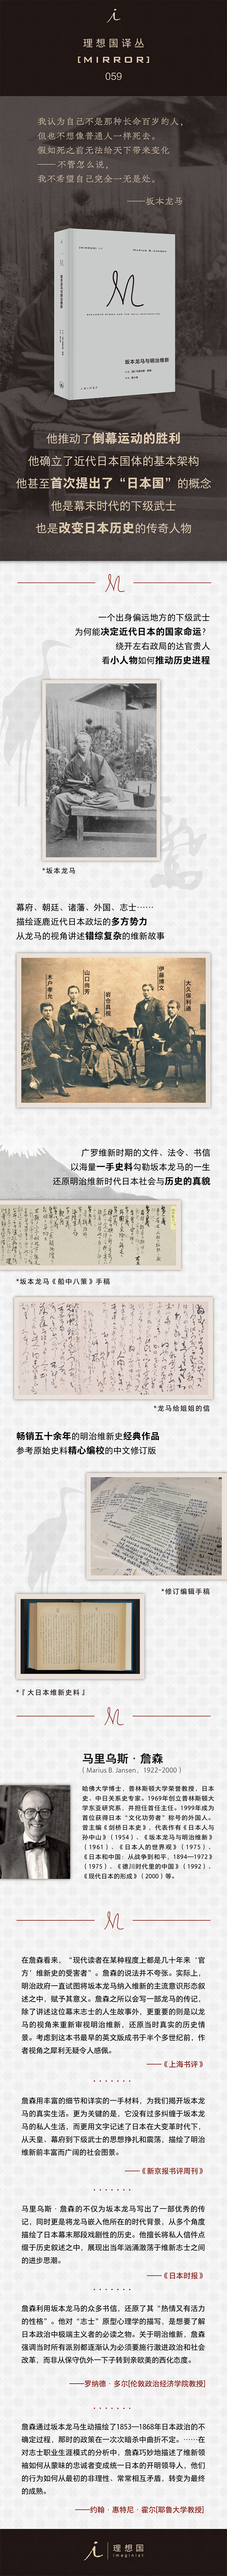 理想国译丛
[MIRROR]
059
我认为自己不是那种长命百岁的人，
但也不想像普通人一样死去。
假如死之前无法给天下带来变化
——不管怎么说，
我不希望自己完全一无是处。
——坂本龙马
M
坂本龙马与明治维新
他推动了倒幕运动的胜利
他确立了近代日本国体的基本架构
他甚至首次提出了“日本国”的概念
他是幕末时代的下级武士
也是改变日本历史的传奇人物
M
一个出身偏远地方的下级武士
为何能决定近代日本的国家命运？
绕开左右政局的达官贵人
看小人物如何推动历史进程
*坂本龙马
幕府、朝廷、诸藩、外国、志士……
描绘逐鹿近代日本政坛的多方势力
从龙马的视角讲述错综复杂的维新故事
木户孝允
山口尚芳
岩仓具视
伊藤博文
大久保利通
广罗维新时期的文件、法令、书信
以海量一手史料勾勒坂本龙马的一生
还原明治维新时代日本社会与历史的真貌
*坂本龙马《船中八策》手稿
*龙马给姐姐的信
畅销五十余年的明治维新史经典作品
参考原始史料精心编校的中文修订版
*修订编辑手稿
*『大日本维新史料』
M
马里乌斯·詹森
（Marius B. Jansen，1922-2000）
哈佛大学博士，普林斯顿大学荣誉教授，日本
史、中日关系史专家。1969年创立普林斯顿大
学东亚研究系，并担任首任主任。1999年成为
首位获得日本“文化功劳者”称号的外国人。
曾主编《剑桥日本史》，代表作有《日本人与
孙中山》（1954）、《坂本龙马与明治维新》
（1961）、《日本人的世界观》（1975）、
《日本和中国：从战争到和平，1894—1972》
（1975）、《德川时代里的中国》（1992）、
《现代日本的形成》（2000）等。
M
在詹森看来，“现代读者在某种程度上都是几十年来‘官
方’维新史的受害者”。詹森的说法并不夸张。实际上，
明治政府一直试图将坂本龙马纳入维新的主流意识形态叙
述之中，赋予其意义。詹森之所以会写一部龙马的传记，
除了讲述这位幕末志士的人生故事外，更重要的则是以龙
马的视角来重新审视明治维新，还原当时真实的历史情
景。考虑到这本书最早的英文版成书于半个多世纪前，作
者视角之犀利无疑令人感佩。
——《上海书评》
詹森用丰富的细节和详实的一手材料，为我们揭开坂本龙
马的真实生活。更为关键的是，它没有过多纠缠于坂本龙
马的私人生活，而更用文字记述了日本在大变革时代下，
从天皇、幕府到下级武士的思想挣扎和震荡，描绘了明治
维新前丰富而广阔的社会图景。
——《新京报书评周刊》
马里乌斯·詹森的不仅为坂本龙马写出了一部优秀的传
记，同时更是将龙马嵌入他所在的时代背景，从多个角度
描绘了日本幕末那段戏剧性的历史。他擅长将私人信件点
缀于历史叙述之中，展现出当年汹涌激荡于维新志士之间
的进步思潮。
——《日本时报》
詹森利用坂本龙马的众多书信，还原了其“热情又有活力
的性格”。他对“志士”原型心理学的描写，是想要了解
日本政治中极端主义者的必读之物。关于明治维新，詹森
强调当时所有派别都逐渐认为必须要施行激进政治和社会
改革，而非从保守仇外一下子转到亲欧美的西化态度。
——罗纳德·多尔[伦敦政治经济学院教授]
詹森通过坂本龙马生动描绘了1853—1868年日本政治的不
确定过程，那时的政策在一次次暗杀中曲折不定。……在
对志士职业生涯模式的分析中，詹森巧妙地描述了维新领
袖如何从蒙昧的忠诚者变成统一日本的开明领导人，他们
的行为如何从最初的非理性、常常相互矛盾，转变为最终
的成熟。
——约翰·惠特尼·霍尔[耶鲁大学教授]
理想国
imaginist